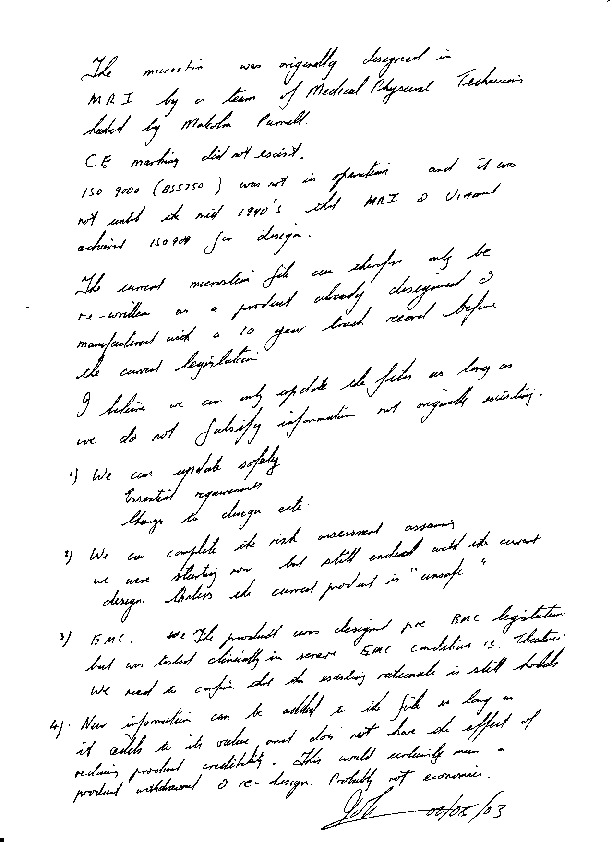 The microstim was originally designed in
MRI by a team of Medical Physicist Technicians
headed by Malcolm Purnell.
C.E marking did not exist.
ISO 9000 (BS5750) was not in operation and it was
not until the mid 1990's that MRI &
achieved ISO 9001 for design.
The current microstim file can therefore only be
re-written as a product already designed &
manufactured with a 10 year track record before
the current legislation
I believe we can only update the files as long as
we do not falsify information not originally existing.
1) We can update safety
Essential requirements
Change to design etc.
2) We can complete the risk assessment assuming
we were starting now but still ended with the current
design. Unless the current product is "unsafe"
3) EMC. The product was designed pre EMC legislation
but was tested clinically in severe EMC conditions ie. Theatres.
We need to confirm that the existing rationale is still
4). New information can be added to the file as long as
it adds to its value and does not have the effect of
reducing product credibility. This would certainly mean a
product withdrawal & re-design. Probably not economic.
/03